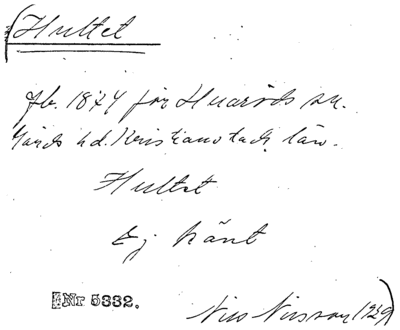 (Hultet
Jb. 1874 för Huaröds sn.
Gärds hd. Kristianstads län.
Hultet
Ej känt
Nr 5332.
Nils Nilsson 1929)